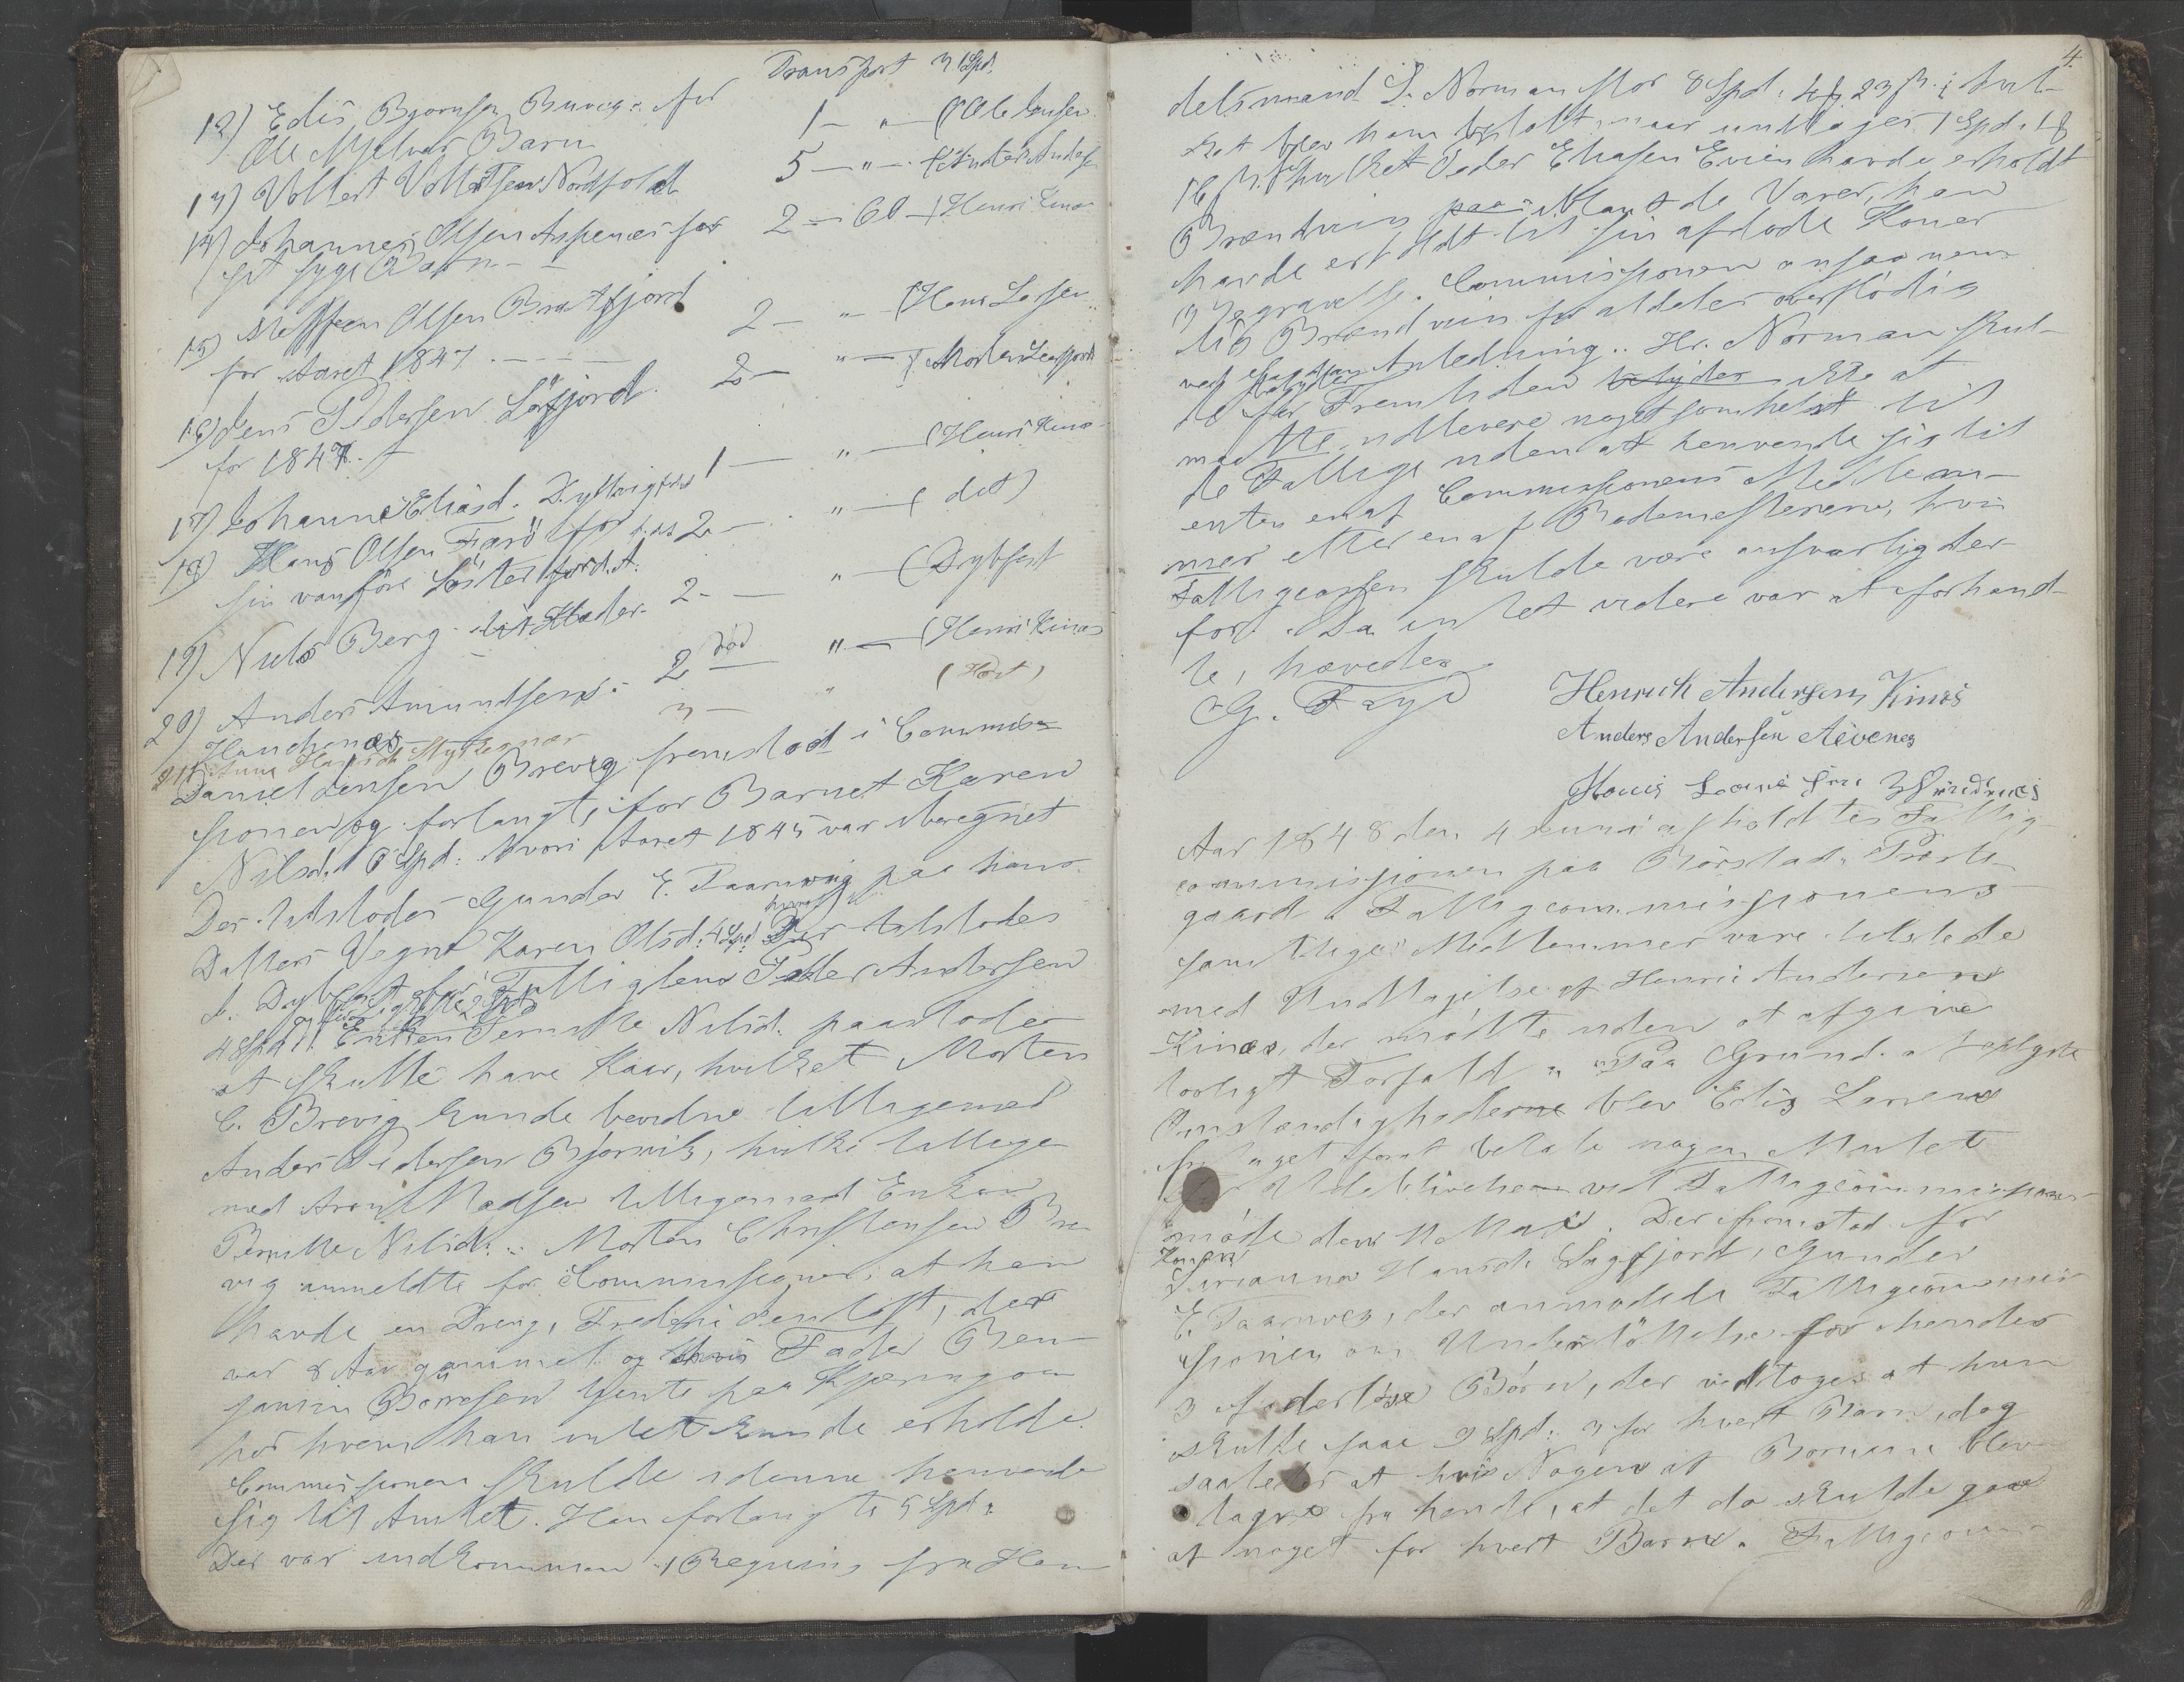 Transport 31 Spd.
12) Edis Bjørnsen Burvg. for 1 - " - (Ole Jensen
Ole Barn
13) Vollert Nordfold 5 - " - (Anders Anders.
14) Johannes Olsen Aspenæs for 2 - 60 - (Henr: Kinæs
sit syge Barn - -
15) Steffen Olsen Bratfjord 2 - " - (Hans Larsen
for Aaret 1847. - - -
16) Jens Pedersen Lørfjord. 2 - " - (Morten
for 1847. -
17) Johanna Eliasd. 1 - " - (Henri Kinæs
18) Hans Olsen Færö for 2 - " - ( dit)
sin vanføre Söster
19) Niels Berg. 2 - - " - (Dybfest
20) Anders Amundsen død 2 - " - (Henri Kinæs
21) Anna 3 - " (Hans)
Daniel Jensen Brevig fremstod i Commis-
sionen og forlangte for Barnet Karen
Nilsd. 6 Spd: hvori Aaret 1845 var iberegnet
Der tilstodes Gunder E. Taarnvig paa hans
Datters Vegne Karen Olsd: 4 Spd. Der tilstodes
J. Dybfest for Fattiglem Peder Andersen
4 Spd. Enken Pernille Nilsd. paastodes
at skulle have Kaar, hvilket Morten
C. Brevig kunde bevidne tilligemed
Anders Pedersen Bjørnvik, hvilke tillige
med Madsen tilligemed Enken
Pernille Nilsd. .. Morten Christensen Bre-
vig anmeldte for Commissionen, at han
havde en Dreng, Frederi der
var 8 Aar gammel og hvis Fader Ben-
jamin Börresen tjente paa Kjeringøen
hos hvem han intet kunde erholde.
Commissionen skulde i denne henvende
sig til Amtet. Han forlangte 5 Spd:
Der var indkommen 1 Regning fra Han-
4.
delsmand L. Norman stor 8 Spd. 4 23 ß. i hvil-
ket blev ham betalt, naar undtages 1 Spd. 1
16 ß. hvilket Peder Eliasen Evien havde erholdt
Brændviin paa iblant de Varer, han
havde erholdt til sin afdøde Kones
Begravelse. Commissionen ansaa nem-
lig Brændviin for aldeles overflödig
ved Anledning. Hr. Norman skul-
de for Fremtiden betyder ikke at
maatte udlevere noget somhelst til
de Fattige uden at henvende sig til
enten en af Commissionens Medlem-
mer eller en af Rodemesterne, hvis
Fattigcassen skulde være ansvarlig der-
for. Da intet videre var at forhand-
le, hævedes
G. Faye
Henrich Andersen Kinæs
Anders Andersen Aevenes
Aar 1848 den 4 Juni afholdtes Fattig-
commissionen paa Rörstad Præste-
gaard. Fattigcommissionens
samtlige Medlemmer vare tilstede
med Undtagelse af Henric Andersen
Kinæs, der mödte uden at afgive
lovligt Forfald. Paa Grund a
Omstændighederne blev Edis Larsen
fritaget for at betale nogen Mulct
for Udeblivelsen ved Fattigcommissions-
møde den 11 Mai. Der fremstod for
Konen
Hansd. Lagfjord, Gunder
E. Taarnvig, der anmodede Fattigcommis-
sionen om Understöttelse for hendes
3 faderløse Börn, der vedtoges at hun
skulle faae 9 Spd: 3 for hvert Barn, dog
saaledes at hvis Nogen af Börnene blev
tagne fra hende, at det da skulde gaae
af noget for hvert Barn. Fattigcom-